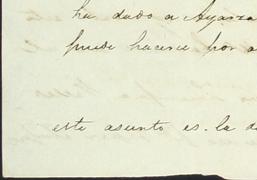 ha dado a Ayarza
puede hacerse por a
este asunto es la de